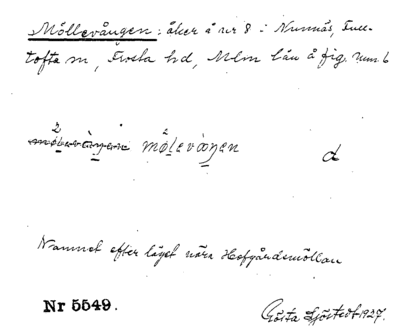 Möllevången: åker å nr 8 i Nunnäs, Full-
tofta sn, Frosta hd, Mlm län å fig. num 6
møləvàŋən d
Namnet efter läget nära Hofgårdsmöllan
Nr 5549. Gösta Sjöstedt 1927.